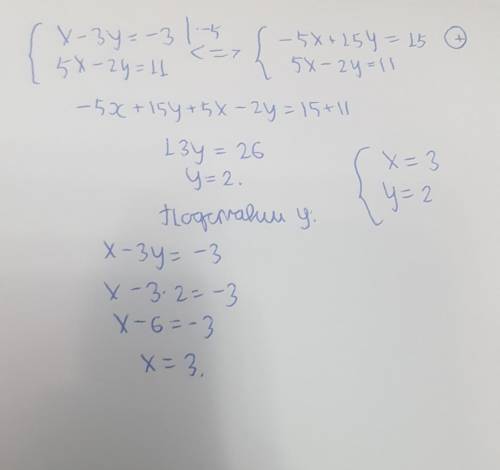 { x - 3y = -3 | · -5 <=> { -5x + 15y = 15 (+)
5x - 2y = 11 5x - 2y = 11
-5x + 15y + 5x - 2y = 15 + 11
13y = 26
y = 2.
{ x = 3
y = 2
Подставим y.
x - 3y = -3
x - 3 · 2 = -3
x - 6 = -3
x = 3.